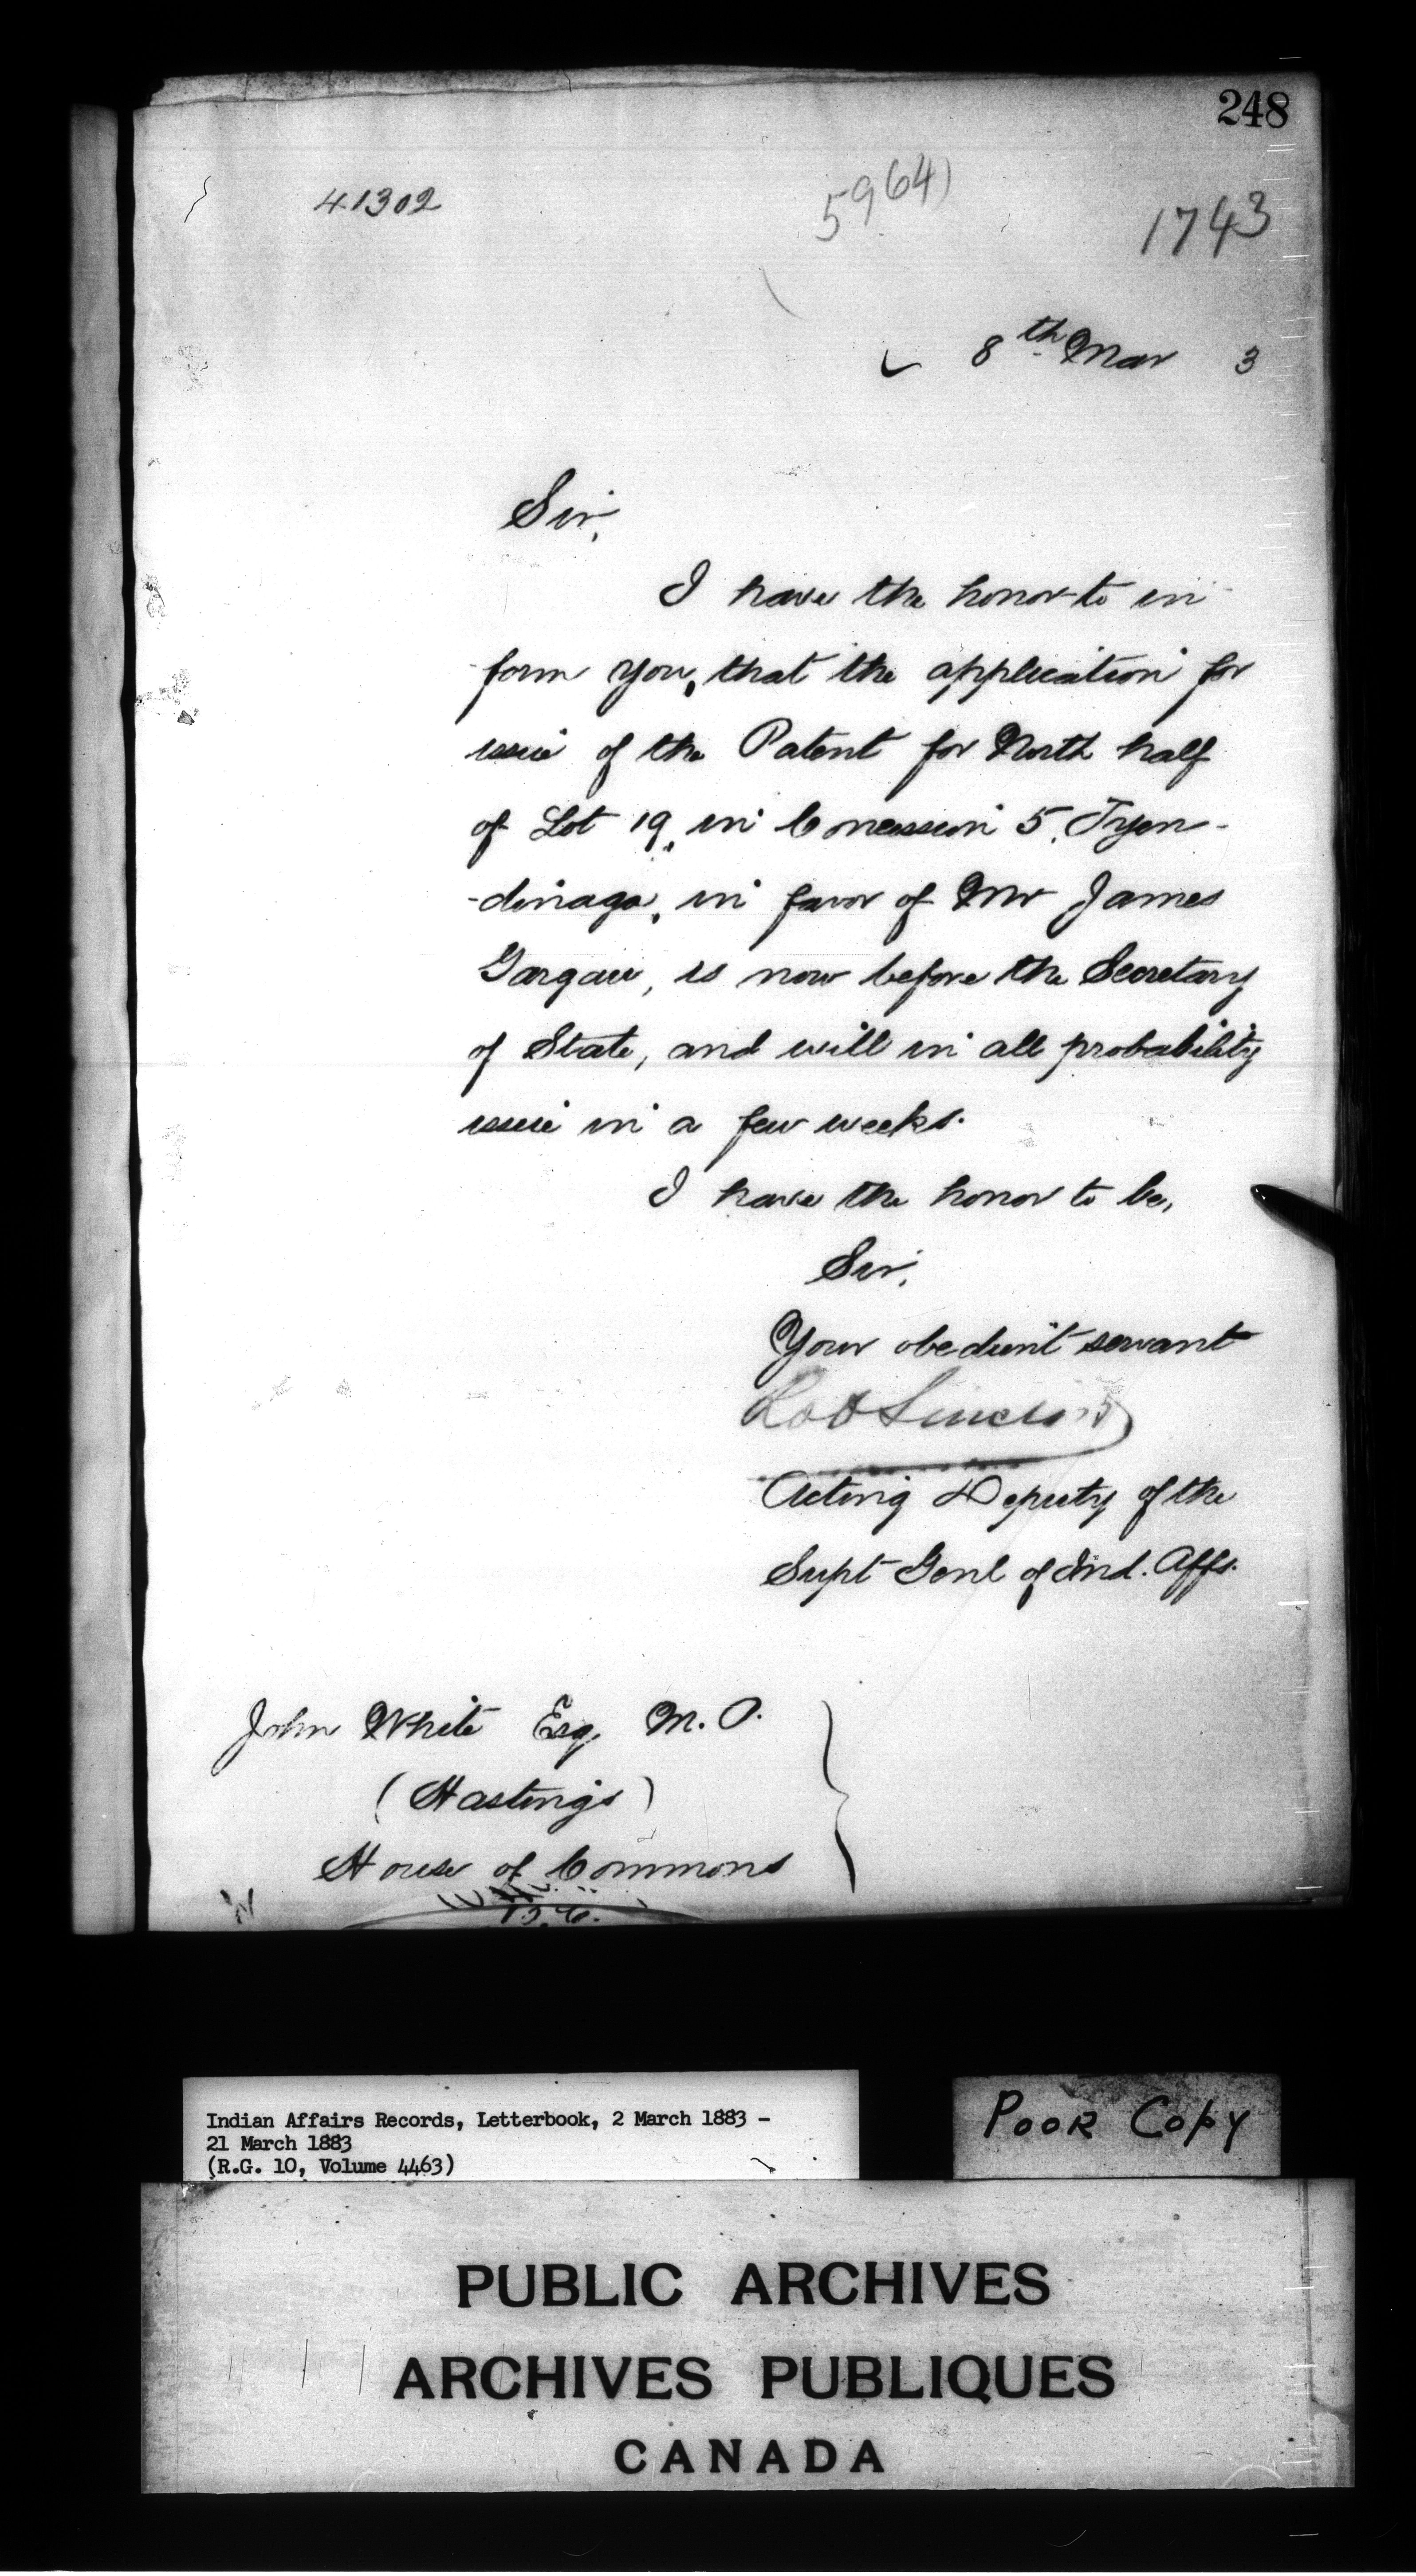 248
41302
5964)
1743
8th Mar 3
Sir,
I have the honor to in-
form you, that the application for
issue of the Patent for North half
of Lot 19, in Concession 5, Tyen-
-dinaga, in favor of Mr James
is now before the Secretary
of State, and will in all probability
issue in a few weeks.
I have the honor to be,
Sir,
Your obedient servant
Rob Sinclair
Acting Deputy of the
Supt Genl of Ind. Affs.
John White Esq. M.P.
(Hastings)
House of Commons
Indian Affairs Records, Letterbook, 2 March 1883 -
21 March 1883
(R.G. 10, Volume 4463)
POOR COPY
PUBLIC ARCHIVES
ARCHIVES PUBLIQUES
CANADA